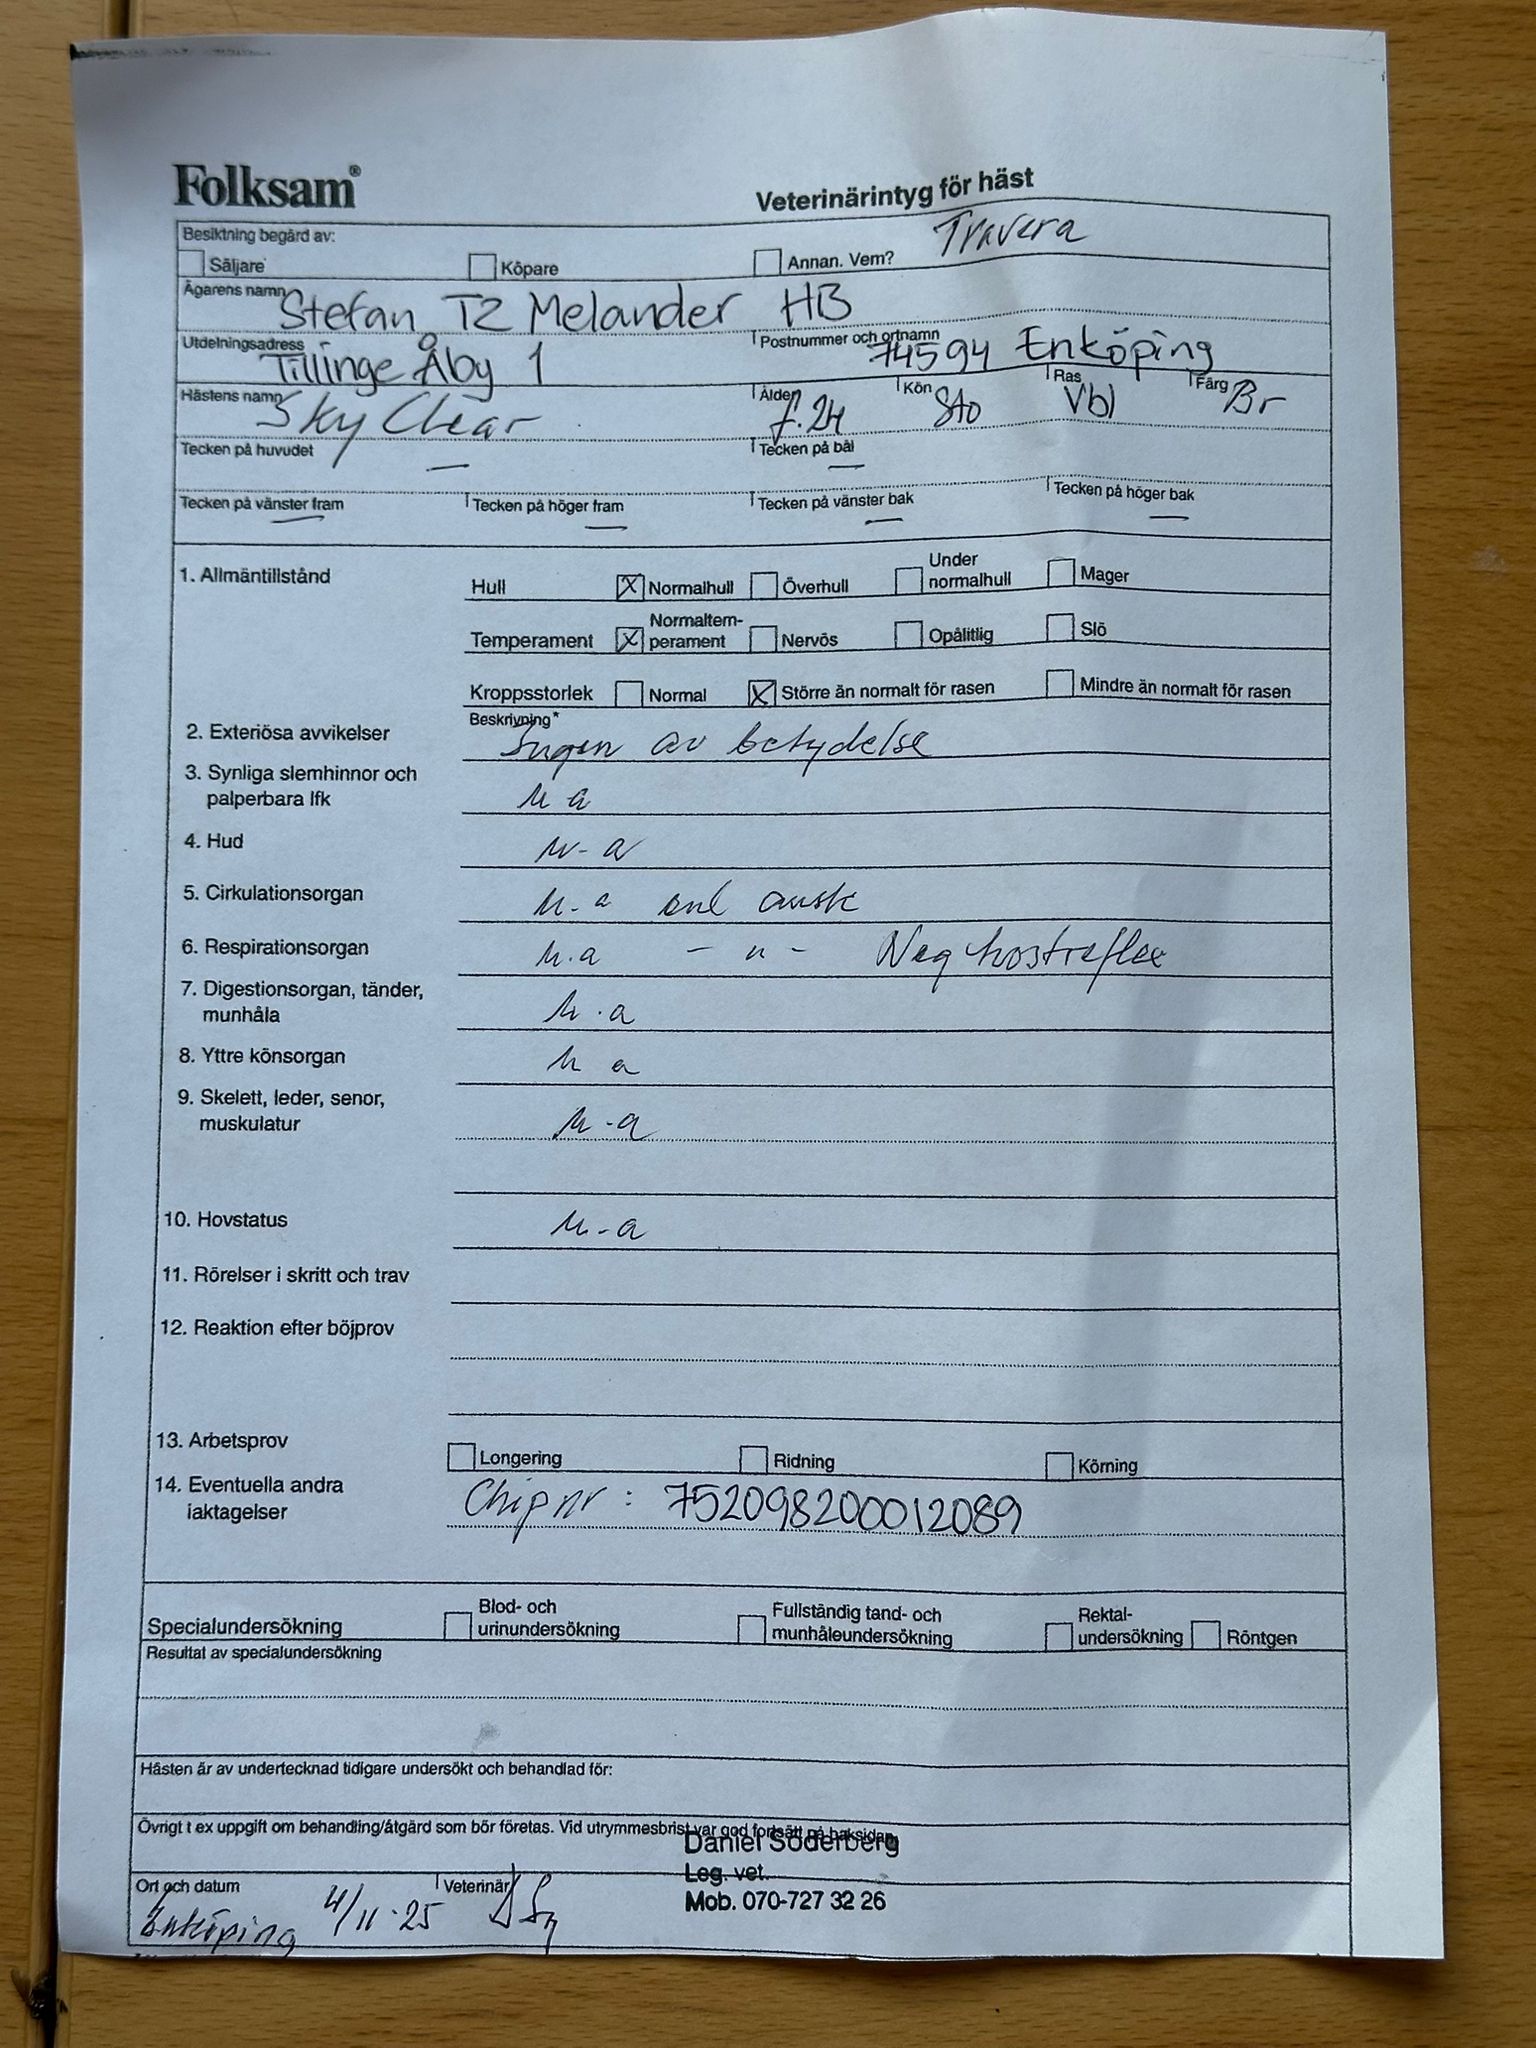 Folksam®
Veterinärintyg för häst
Besiktning begärd av:
Säljare Köpare Annan. Vem? Travera
Ägarens namn Stefan TZ Melander HB
Utdelningsadress Tillinge Åby 1 Postnummer och ortnamn 74594 Enköping
Hästens namn Sky Clear Ålder f.24 Kön Sto Ras Vbl Färg Br
Tecken på huvudet — Tecken på bål —
Tecken på vänster fram — Tecken på höger fram — Tecken på vänster bak — Tecken på höger bak —
1. Allmäntillstånd Hull X Normalhull Överhull Under normalhull Mager
Temperament X Normaltem-
perament Nervös Opålitlig Slö
Kroppsstorlek Normal X Större än normalt för rasen Mindre än normalt för rasen
Beskrivning*
2. Exteriösa avvikelser Ingen av betydelse
3. Synliga slemhinnor och
palperbara lfk u a
4. Hud u - a
5. Cirkulationsorgan u - a enl ausk
6. Respirationsorgan u.a - u - Neg hostreflex
7. Digestionsorgan, tänder,
munhåla u . a
8. Yttre könsorgan u a
9. Skelett, leder, senor,
muskulatur u - a
10. Hovstatus u - a
11. Rörelser i skritt och trav
12. Reaktion efter böjprov
13. Arbetsprov Longering Ridning Körning
14. Eventuella andra
iaktagelser Chipnr : 752098200012089
Specialundersökning Blod- och
urinundersökning Fullständig tand- och
munhåleundersökning Rektal-
undersökning Röntgen
Resultat av specialundersökning
Hästen är av undertecknad tidigare undersökt och behandlad för:
Övrigt t ex uppgift om behandling/åtgärd som bör företas. Vid utrymmesbrist var god fortsätt på baksidan.
Daniel Söderberg
Leg. vet.
Mob. 070-727 32 26
Ort och datum Enköping 4/11-25 Veterinär